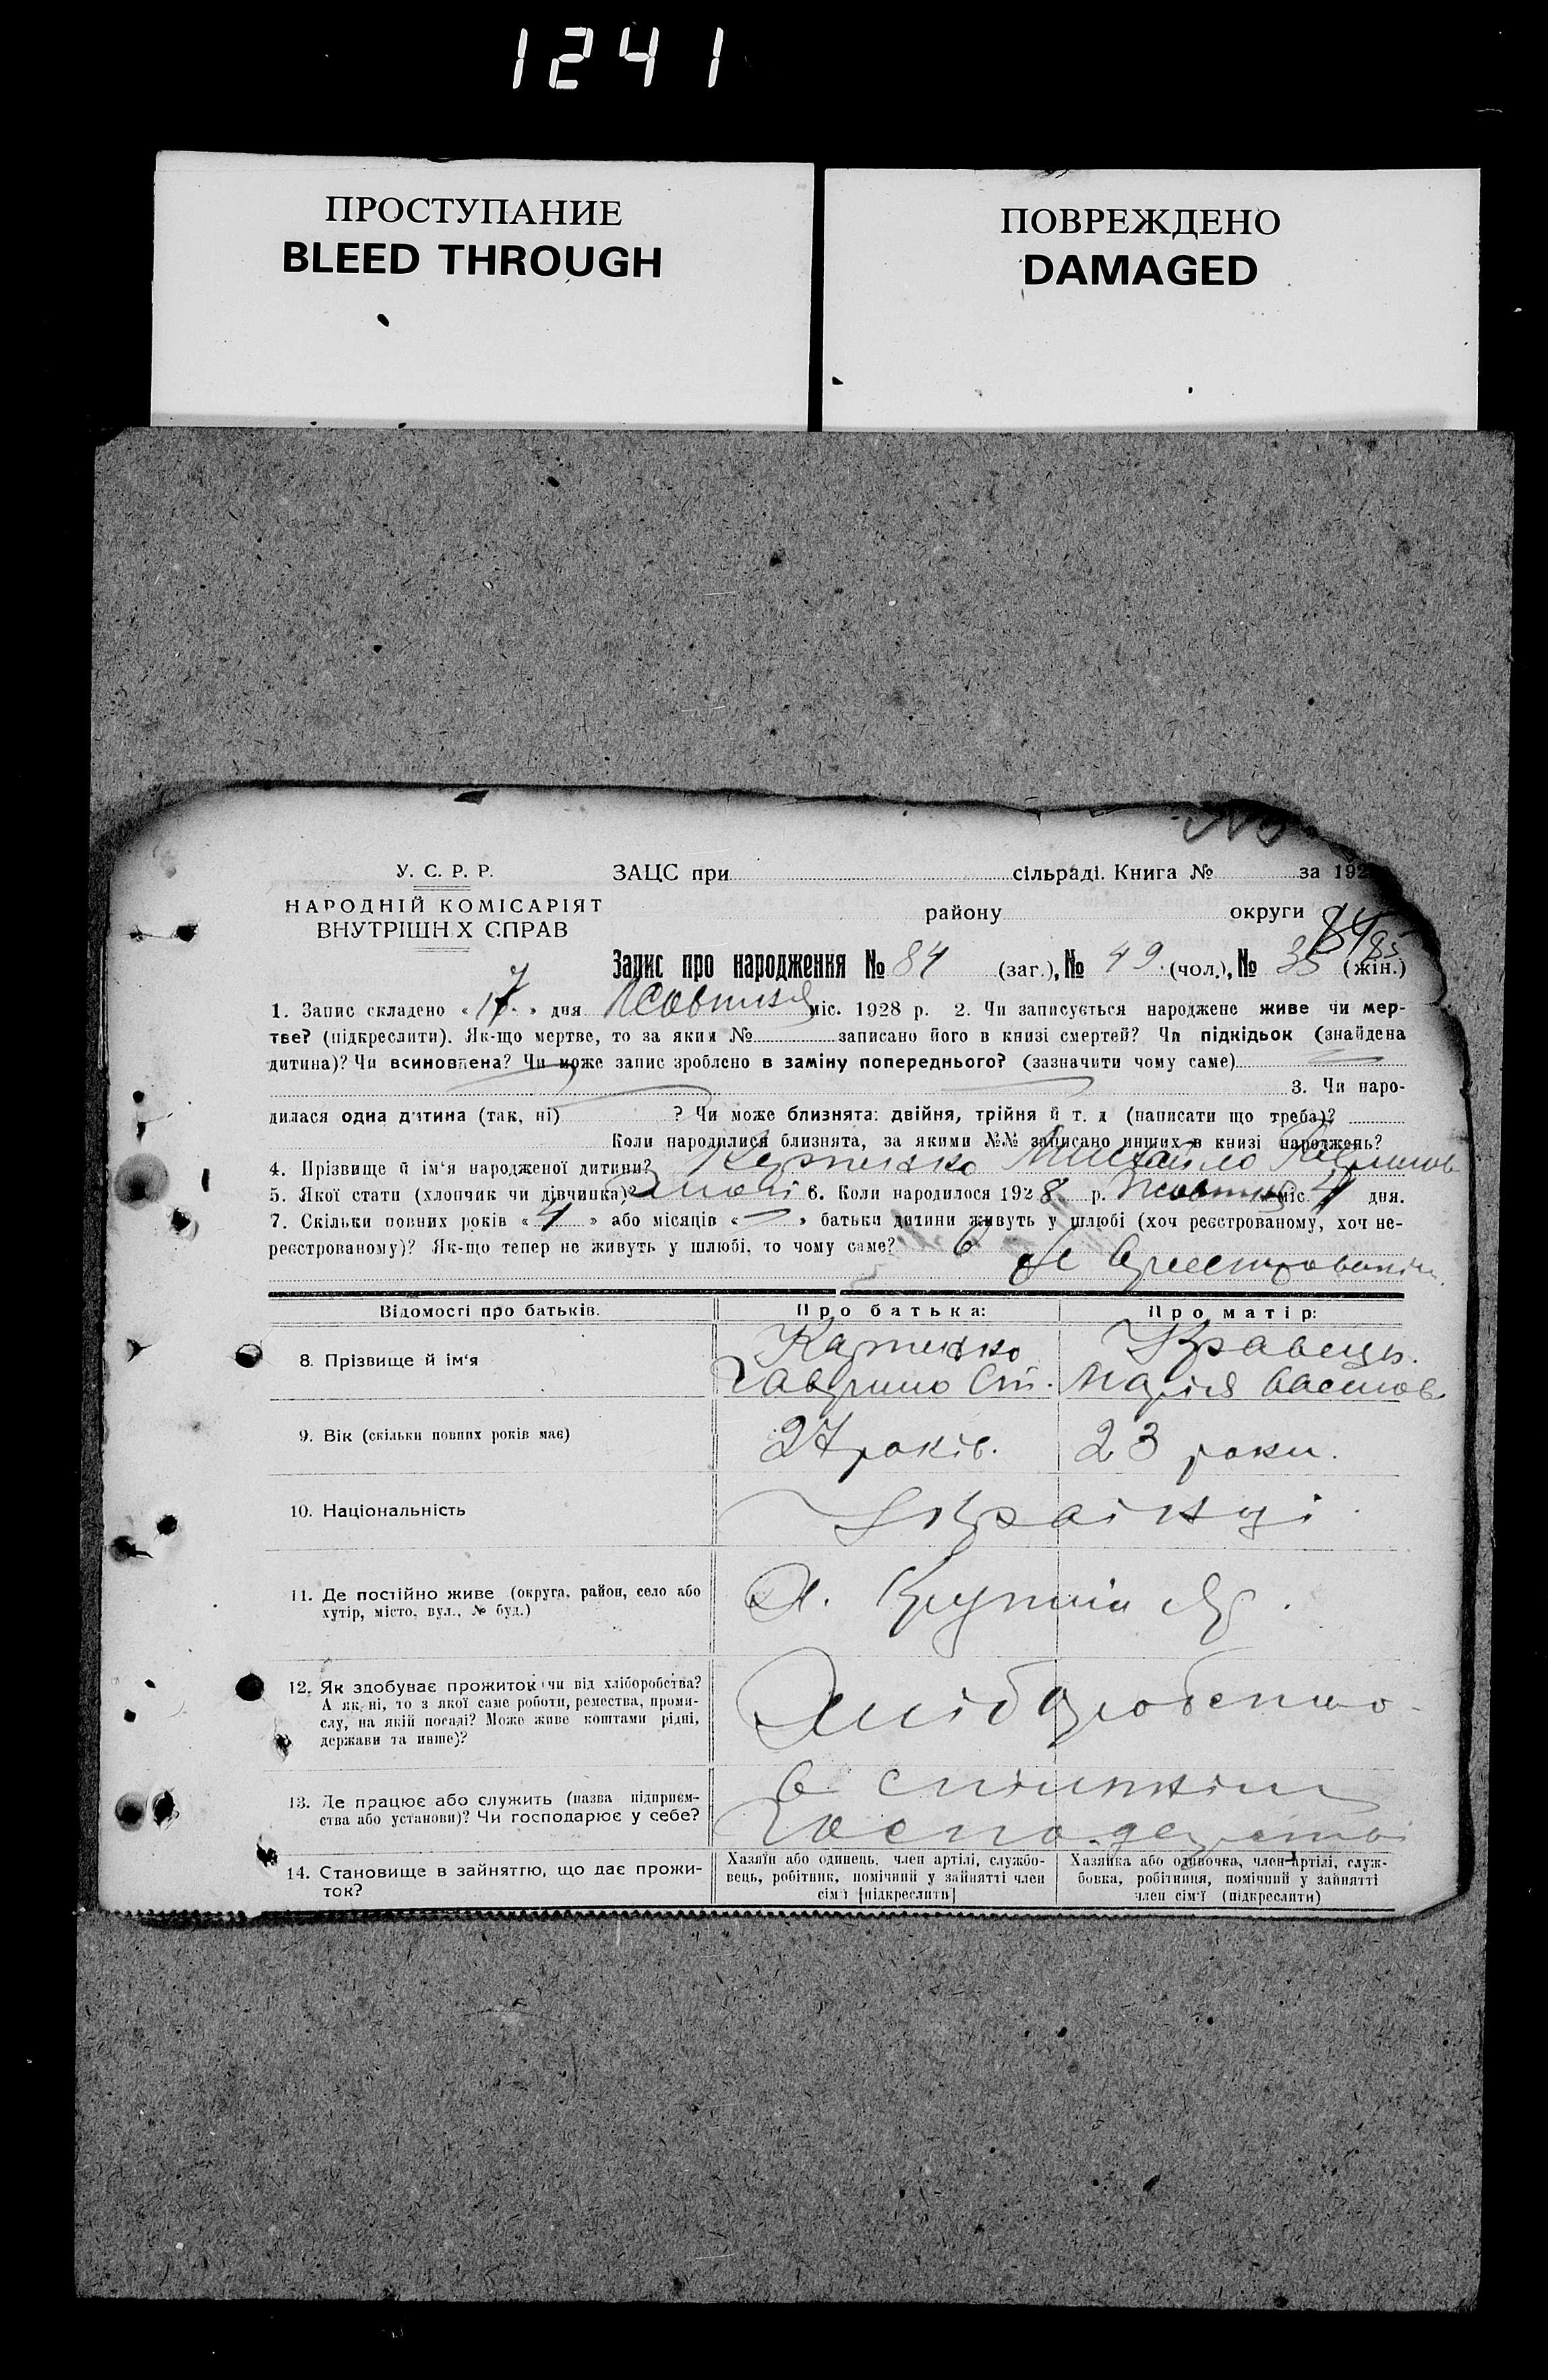 1241
ПРОСТУПАНИЕ
BLEED THROUGH
ПОВРЕЖДЕНО
DAMAGED
У. С. Р. Р.
НАРОДНІЙ КОМІСАРІЯТ
ВНУТРІШН Х СПРАВ
ЗАЦС при сільраді. Книга № за 192
району округи
84/85
Запис про народження № 84 (заг.), № 49 (чол.), № 35 (жін.)
1. Запис складено « 17 » дня Жовтня міс. 1928 р. 2. Чи записується народжене живе чи мер-
тве? (підкреслити). Як-що мертве, то за яким № записано його в книзі смертей? Чи підкідьок (знайдена
дитина)? Чи всиновлена? Чи може запис зроблено в заміну попереднього? (зазначити чому саме)
3. Чи наро-
дилася одна дитина (так, ні) ? Чи може близнята: двійня, трійня й т. д (написати що треба)?
Коли народилися близнята, за якими №№ записано инших в книзі народжень?
4. Прізвище й ім'я народженої дитини? Михайло
5. Якої стати (хлопчик чи дівчинка)? 6. Коли народилося 1928 р. Жовтня міс. дня.
7. Скільки повних років « 4 » або місяців « — » батьки дитини живуть у шлюбі (хоч реєстрованому, хоч не-
реєстрованому)? Як-що тепер не живуть у шлюбі, то чому саме? в
Відомості про батьків. Про батька: Про матір:
8. Прізвище й ім'я
Кравець.
Гаврило Ст. Марія Васили
9. Вік (скільки повних років має) 27 років. 23 роки.
10. Національність Українці
11. Де постійно живе (округа, район, село або
хутір, місто, вул., № буд.)
Х.
12. Як здобуває прожиток чи від хліборобства?
А як ні, то з якої саме роботи, ремества, проми-
слу, на якій посаді? Може живе коштами рідні,
держави та инше)?
Хліборобство
13. Де працює або служить (назва підприєм-
ства або установи)? Чи господарює у себе?
в спільнім
господарстві
14. Становище в зайняттю, що дає прожи-
ток?
Хазяїн або одинець, член артілі, службо-
вець, робітник, помічний у зайнятті член
сім'ї [підкреслити]
Хазяйка або одиночка, член артілі, служ-
бовка, робітниця, помічний у зайнятті
член сім'ї (підкреслити)